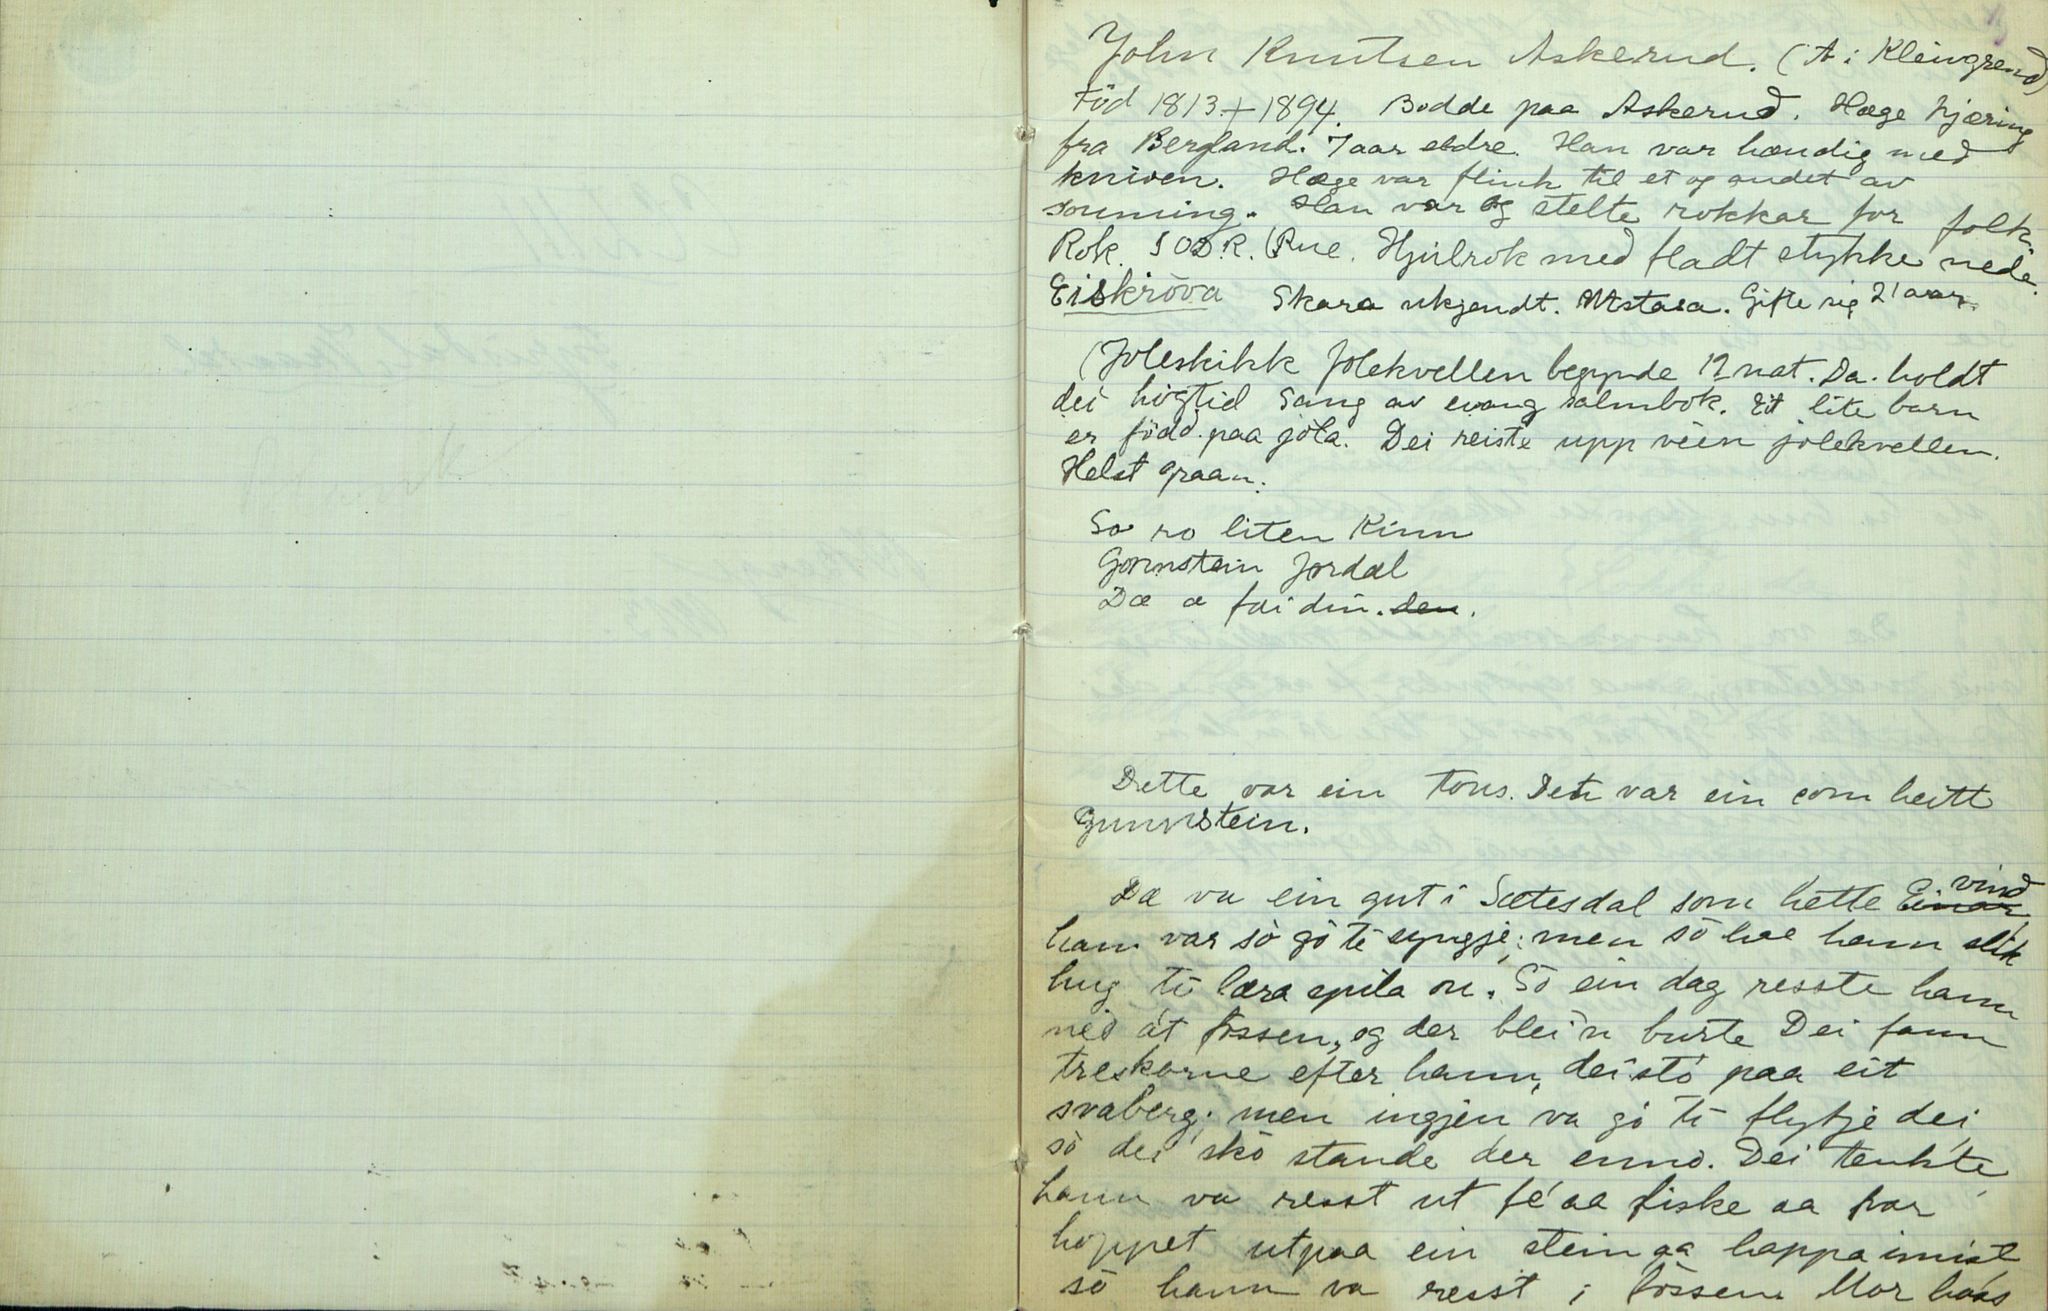 John Knutsen Askerud. (A i Kleivgrend)
Föd 1813 + 1894. Bodde paa Askerud. Hæge kjæring
fra Bergland. 7 aar eldre. Han var hændig med
kniven. Hæge var flink til et og andet av
souming. Han var og stelte rokkar for folk.
Rok. S O D. R. (Rue. Hjulrok med fladt stykke nede.
Eiskröva Skara ukjendt. Gifte sig 21 aar.
(Joleskikk Jolekvellen begynde 12 nat. Da holdt
dei högtid Sang av evang salmbok. Eit lite barn
er född paa jola. Dei reiste upp veien jolekvellen.
Helst graan.
So ro liten Kinn
Gonnstein Jordal
Dæ æ fai din. den.
Dette var ein tons. Det var ein som heitt
Gunnstein.
Dæ va ein gut i Sætesdal som hette Einar vind
hann var sò gò te syngje; men sò hae hann slik
hug te læra spila òu. Sò ein dag resste hann
ned åt fossen, og der blei'n burte Dei fann
treskorne efter hann, dei sto paa eit
svaberg; men ingjen va gò te flytje dei
sò dei skò stande der ennò. Dei tenkte
hann va resst ut fe aa fiske aa har
hoppet utpaa ein stein aa happa imist
sò hann va resst i fossen Mor haas